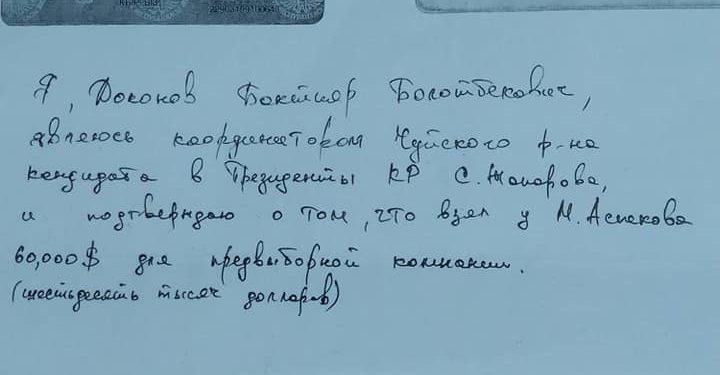 Я, Доконов Бактияр Болотбекович,
являюсь координатором Чуйского р-на
кандидата в Президенты КР С. Жапарова,
и подтверждаю о том, что взял у М. Аспекова
60,000$ для предвыборной компании.
(шестьдесять тысяч долларов)